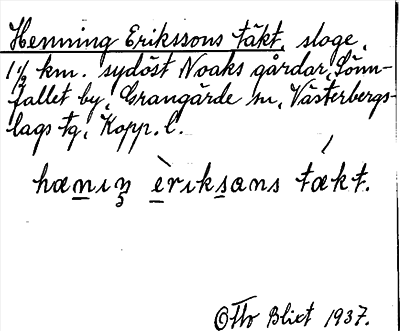 Henning Erikssons täkt, sloge,
1 1/2 km. sydöst Noaks gårdar, Sunn-
fallet by, Grangärde sn, Västerbergs-
lags tg, Kopp. l.
hæniŋ èriksans tækt.
Otto Blixt 1937.